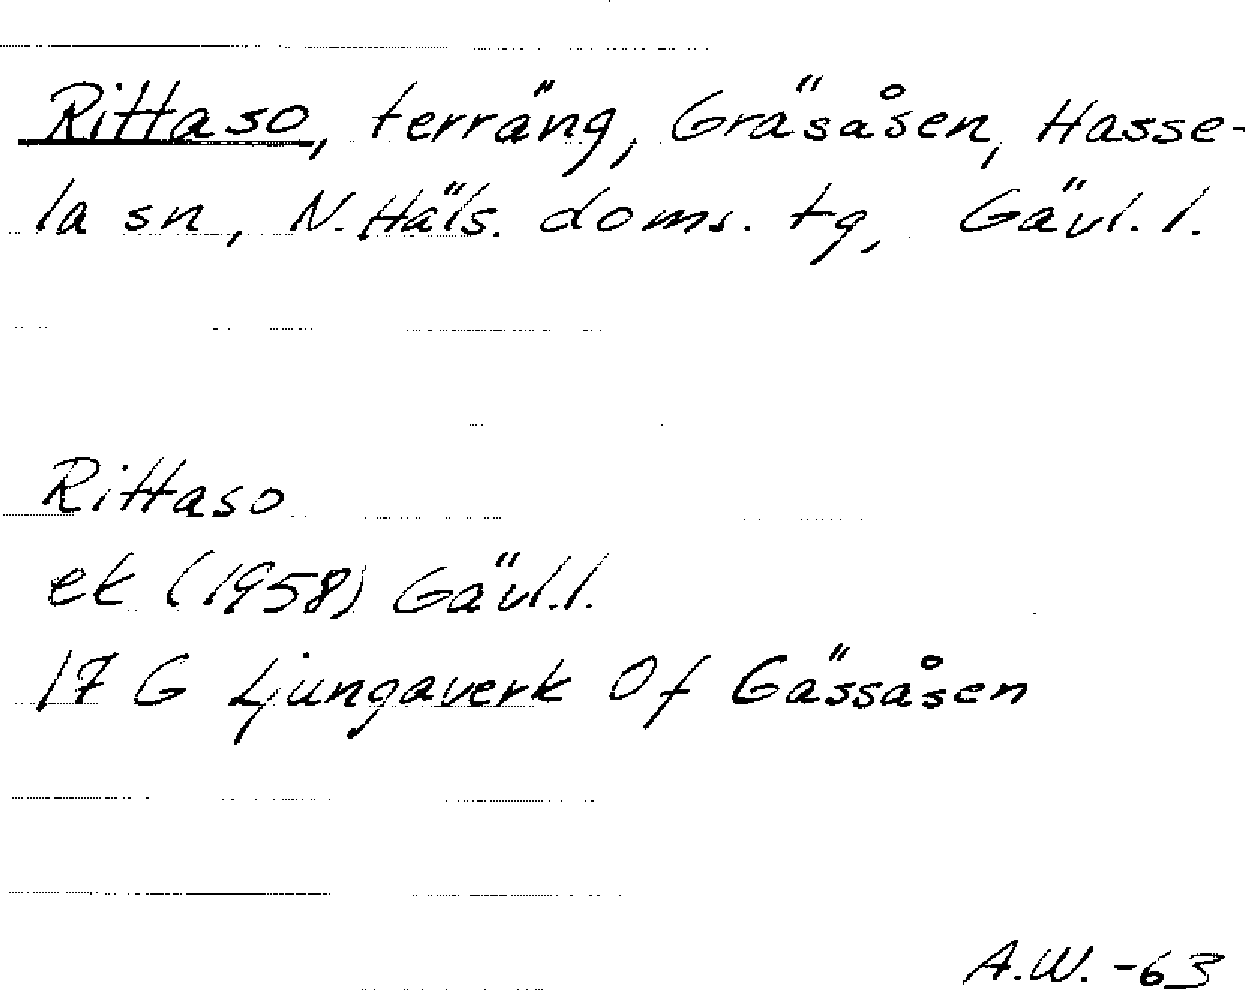 Rittaso, terräng, Gräsåsen, Hasse-
la sn, N. Häls. doms. tg, Gävl. l.
Rittaso
ek (1958) Gävl. l.
17 G Ljungaverk 0f Gässåsen
A.W. -63